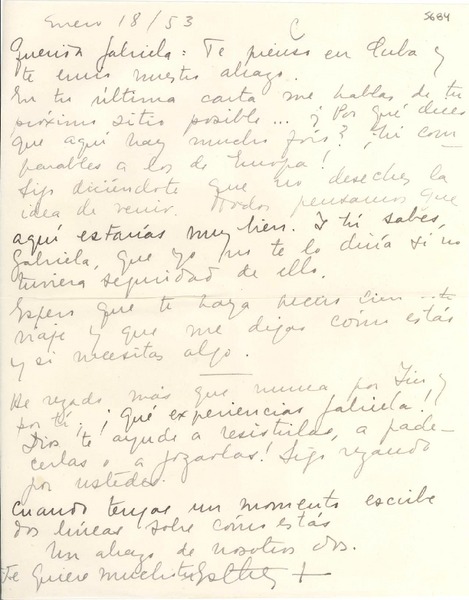 Enero 18/53
C
5684
Querida Gabriela: Te pienso en Cuba y
te envío nuestro abrazo.
En tu última carta me hablas de tu
próximo sitio posible... ¿Por qué dices
que aquí hay mucho frío? ¡Ni com
parables a los de Europa!
Sigo diciéndote que no deseches la
idea de venir. Todos pensamos que
aquí estarías muy bien. Y tú sabes,
Gabriela, que yo no te lo diría si no
tuviera seguridad de ello.
Espero que te haya hecho bien el
viaje y que me digas cómo estás
y si necesitas algo.
He rezado más que nunca por
por ti; ¡Qué experiencias Gabriela!
Dios te ayude a resistirlas, a pade-
cerlas o a gozarlas! Sigo rezando
por ustedes.
Cuando tengas un momento escribe
dos líneas sobre cómo estás
Un abrazo de nosotros dos.
Te quiere mucho tu Esther +